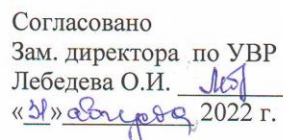 Согласовано
Зам. директора по УВР
Лебедева О.И.
«31» августа 2022 г.